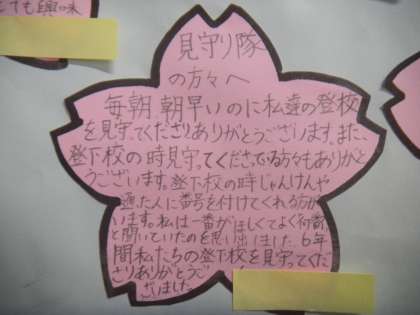 ても興味
見守り隊
の方々へ
毎朝、朝早いのに私達の登校
を見守ってくださりありがとうございます。また、
登下校の時見守ってくださっている方々もありがと
うございます。登下校の時じゃんけんや
通った人に番号を付けてくれる方が
います。私は一番がほしくてよく何番
と聞いていたのを思い出しました。6年
間私たちの登下校を見守ってくだ
さりありがとうご
ざいました。